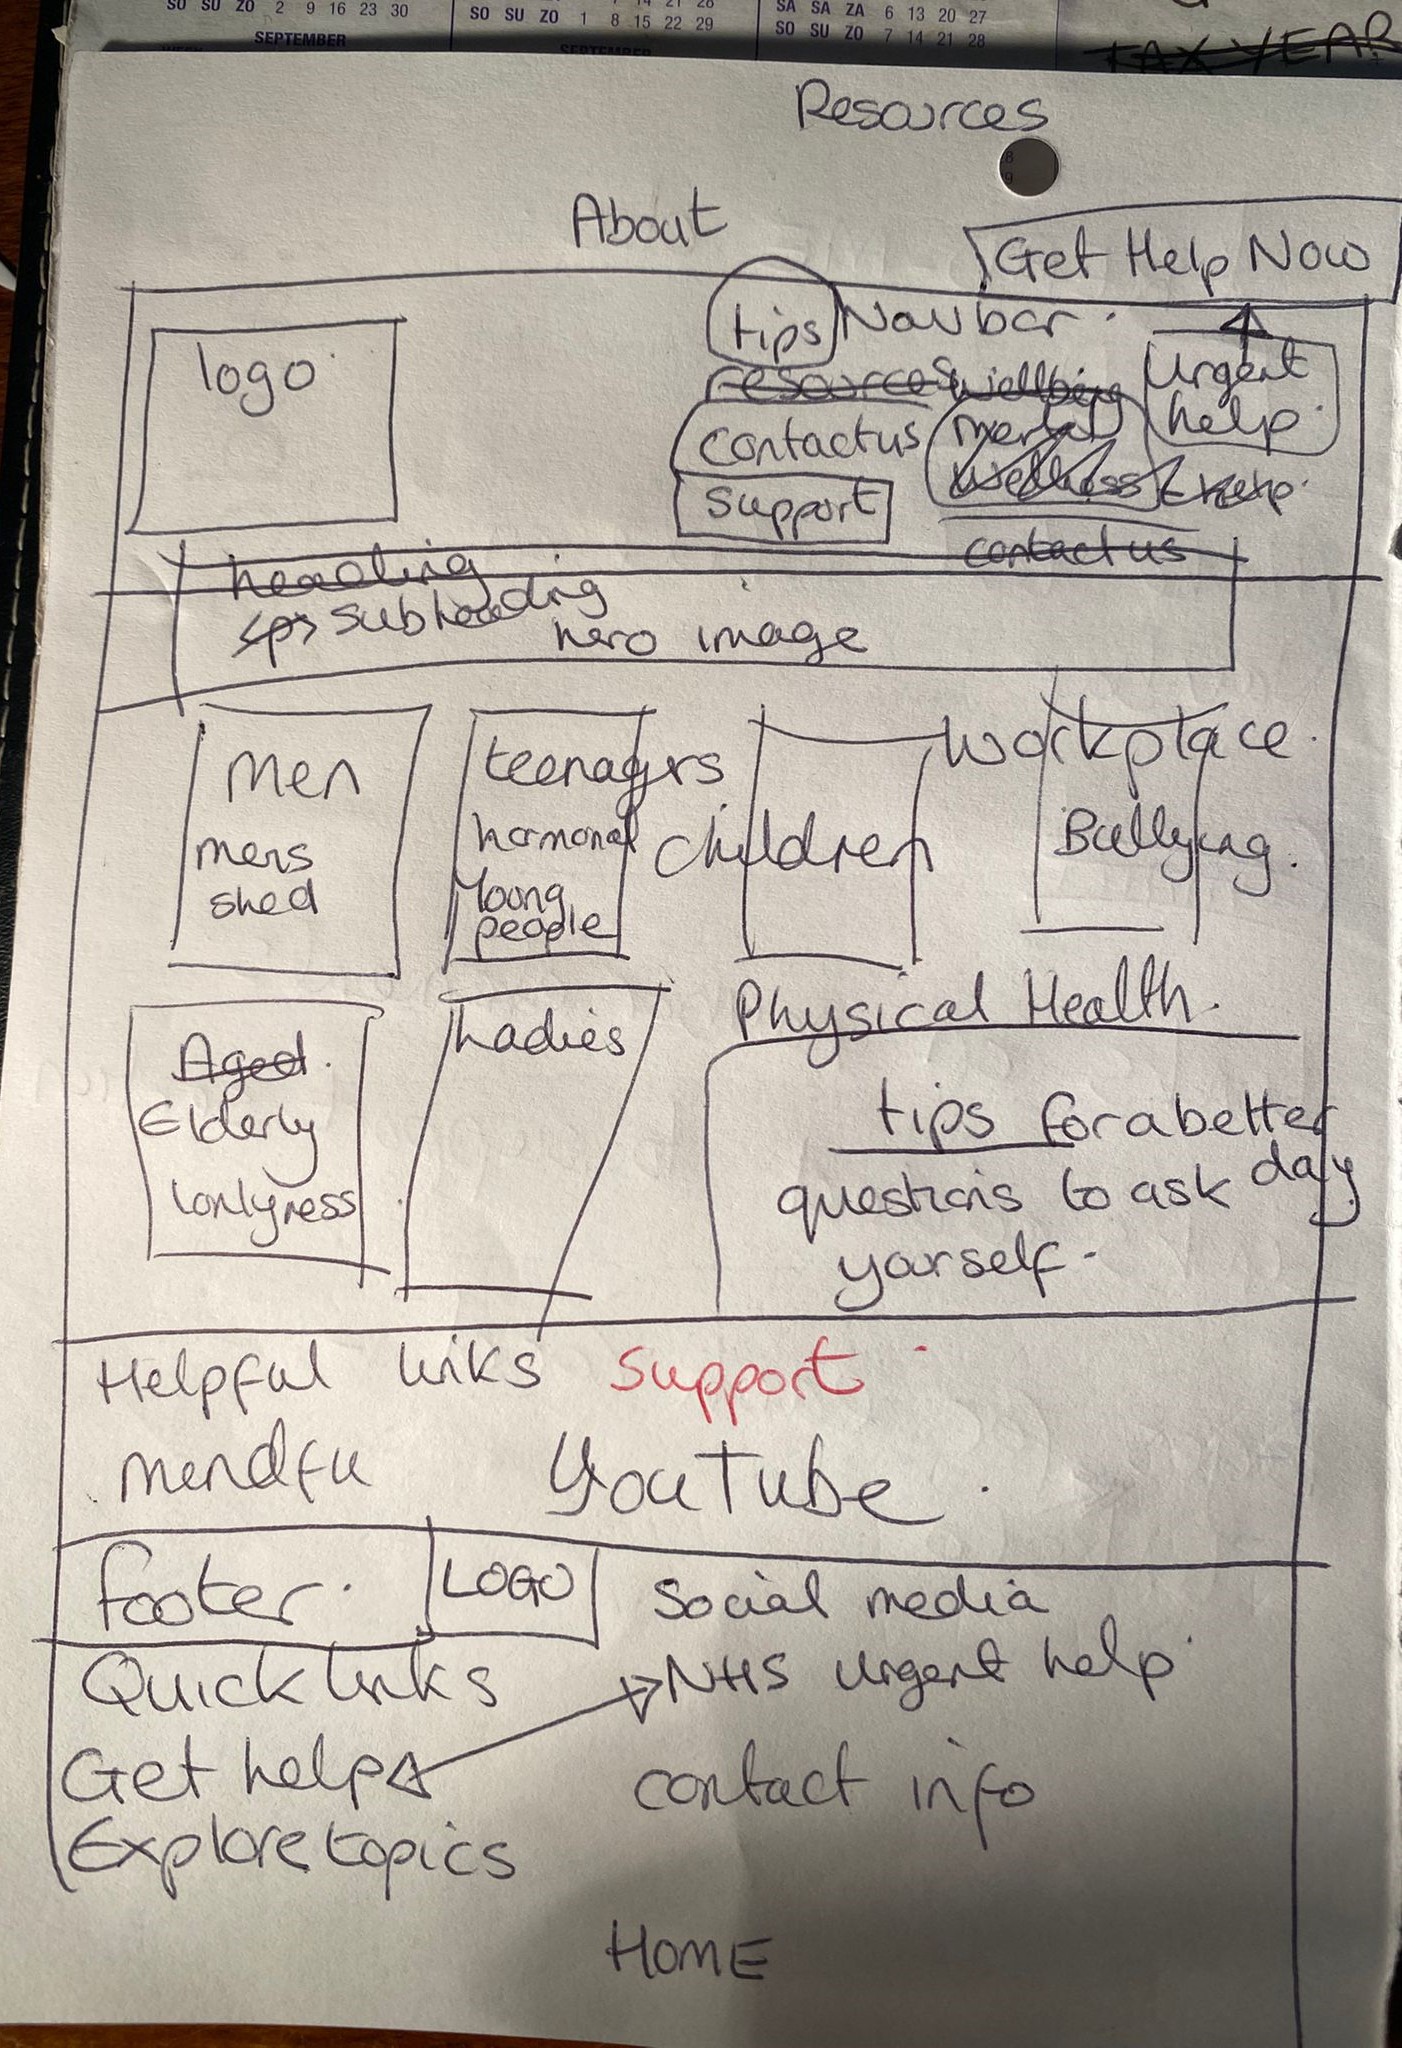 SO SU ZO 2 9 16 23 30
SEPTEMBER
14 21 28
SO SU ZO 1 8 15 22 29
SEPTEMBER
SA SA ZA 6 13 20 27
SO SU ZO 7 14 21 28
TAX YEAR
Resources
About
Get Help Now
logo
tips Navbar.
resources wellbeing
Urgent
help.
contact us
mental
wellness
support
contact us
heading
<p> subheading
hero image
Men
mens
shed
teenagrs
hormonal
Young
people
children
workplace.
Bullying.
Aged.
Elderly
lonlyness
Ladies
Physical Health.
tips for a better
day
questions to ask
yourself.
Helpful links support
mindfu
YouTube.
footer.
LOGO
Social media
Quick links
NHS urgent help
Get help
contact info
Explore topics
HOME